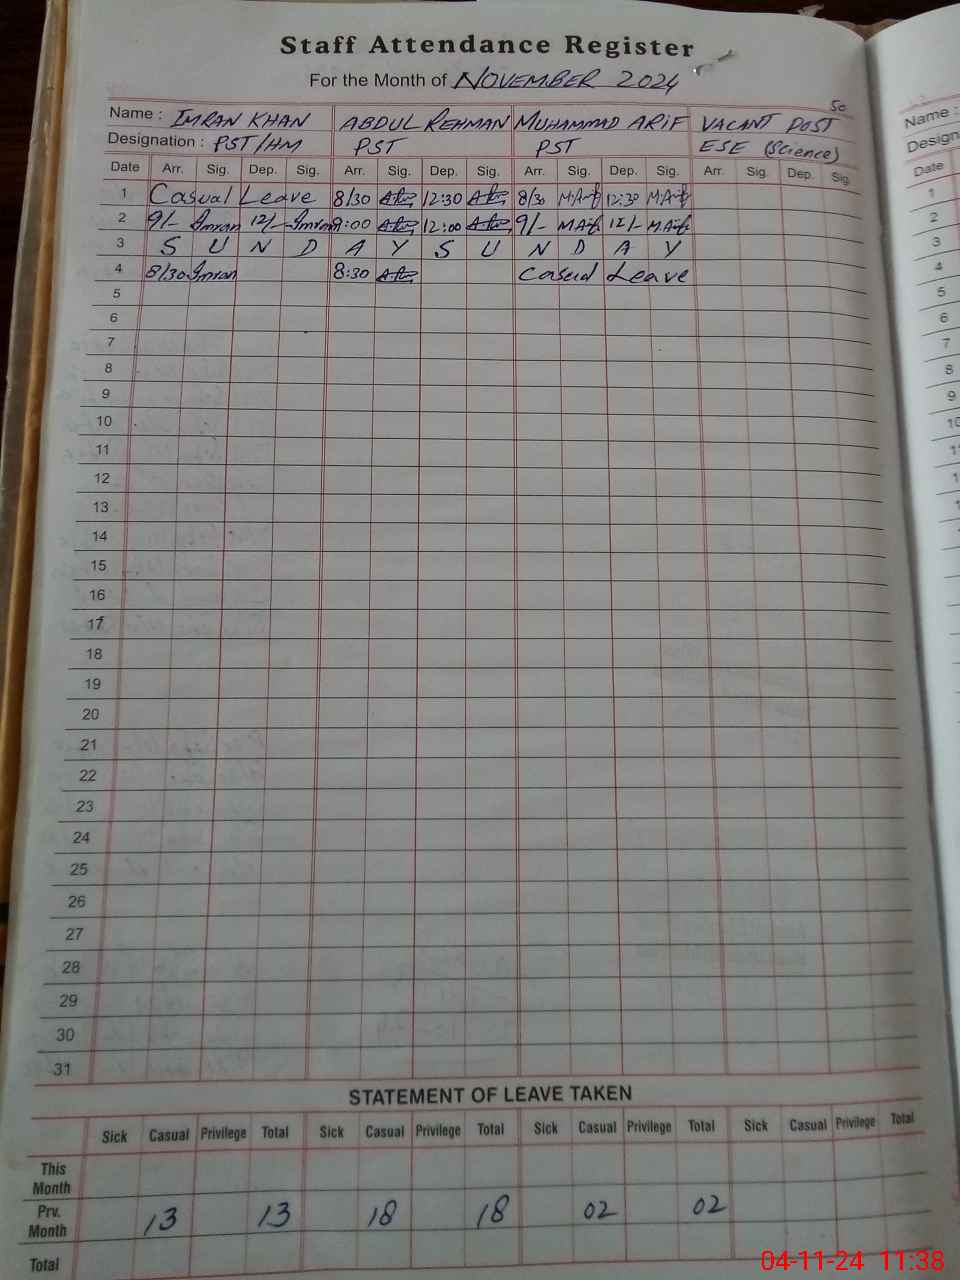 Staff Attendance Register
For the Month of NOVEMBER 2024
50
Name : IMRAN KHAN ABDUL REHMAN MUHAMMAD ARIF VACANT POST
Designation : PST/HM PST PST ESE (Science)
Date Arr. Sig. Dep. Sig. Arr. Sig. Dep. Sig. Arr. Sig. Dep. Sig. Arr. Sig. Dep. Sig.
1 Casual Leave 8/30 12:30 8/30 M.Arif 12:30 M.Arif
2 9/- Imran 12/- Imran 9:00 12:00 9/- M.Arif 12/- M.Arif
3 S U N D A Y S U N D A Y
4 8/30 Imran 8:30 Casual Leave
5
6
7
8
9
10
11
12
13
14
15
16
17
18
19
20
21
22
23
24
25
26
27
28
29
30
31
STATEMENT OF LEAVE TAKEN
Sick Casual Privilege Total Sick Casual Privilege Total Sick Casual Privilege Total Sick Casual Privilege Total
This Month
Prv. Month 13 13 18 18 02 02
Total
Name :
Design
Date
1
2
3
4
5
6
7
8
9
04-11-24 11:38